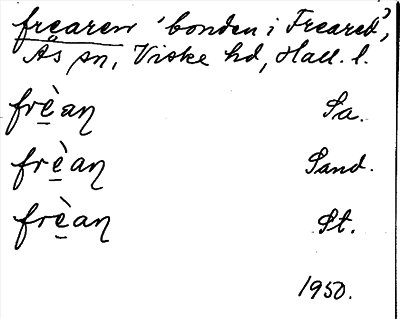 frearen 'bonden i Freared',
Ås sn, Viske hd, Hall. l.
frè̠aɳ Sa.
frè̠aɳ Sand.
frè̠aɳ St.
1950.